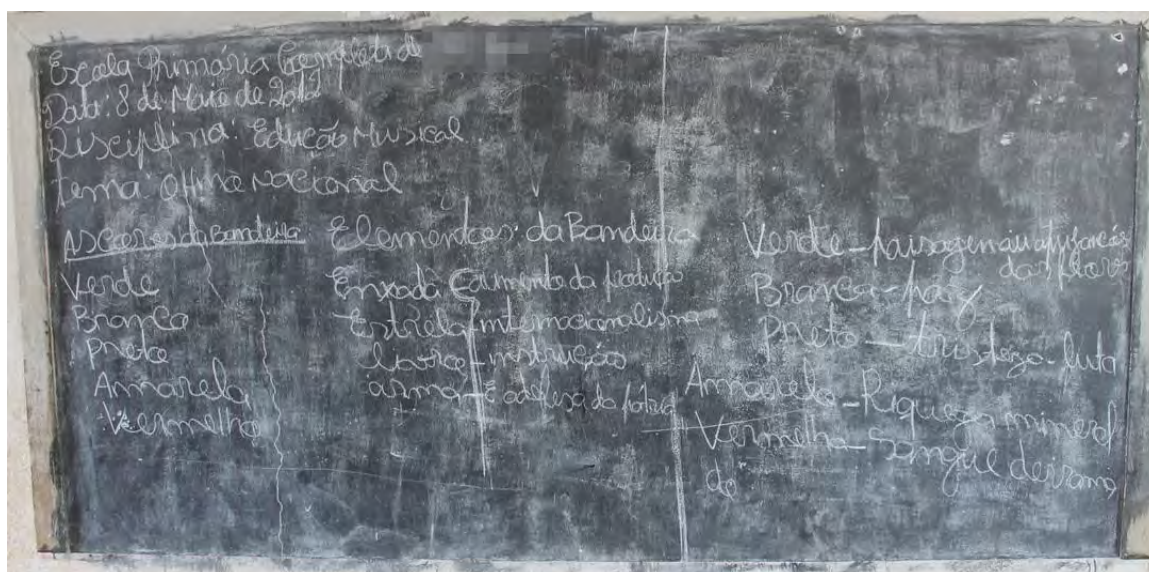 Escola Primária Completa de
Data: 8 de Maio de 2012
Disciplina: Edução Musical
Tema: O Hino Nacional
As Cores da Bandeira
Verde
Branca
Preta
Amarela
Vermelha
Elementos da Bandeira
Enxada da produção
Estrela - internacionalismo
livro - instrução
arma - É a defesa da pátria
Verde - paisagem
das flores
Branca - paz
Preto - tristeza - luta
Amarelo - Riqueza mineral
Vermelha - Sangue derrama
do